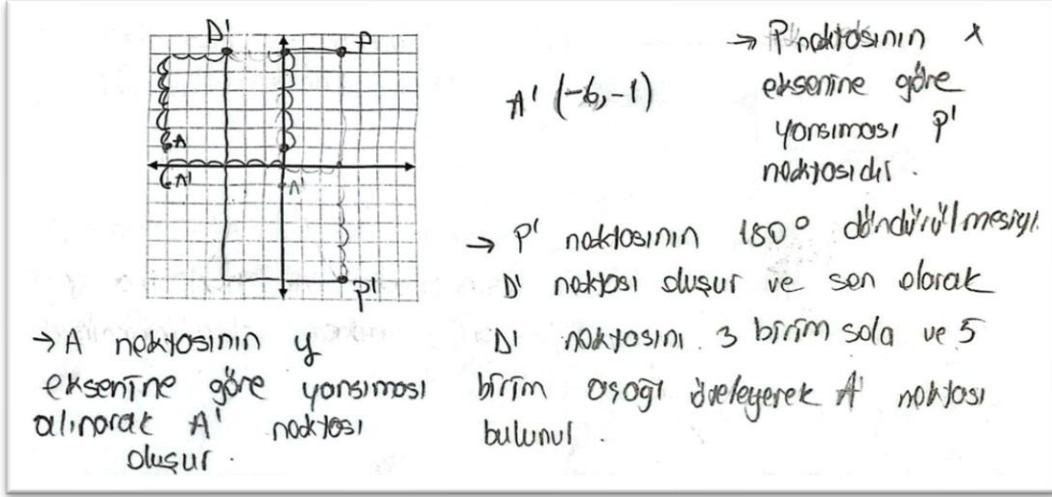 D'
P
A
A'
A'
P'
A' (-6,-1)
→ P noktasının x
eksenine göre
yansıması P'
noktasıdır.
→ P' noktasının 180° döndürülmesiyl
D' noktası oluşur ve son olarak
D' noktasını 3 birim sola ve 5
birim aşağı öteleyerek A' noktası
bulunur.
→ A noktasının y
eksenine göre yansıması
alınarak A' noktası
oluşur.